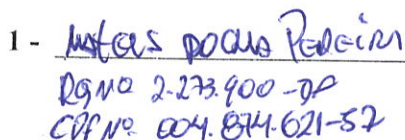 1 - Mateus Rocha Pereira
RG Nº 2.273.900-DF
CPF Nº 004.874.621-57